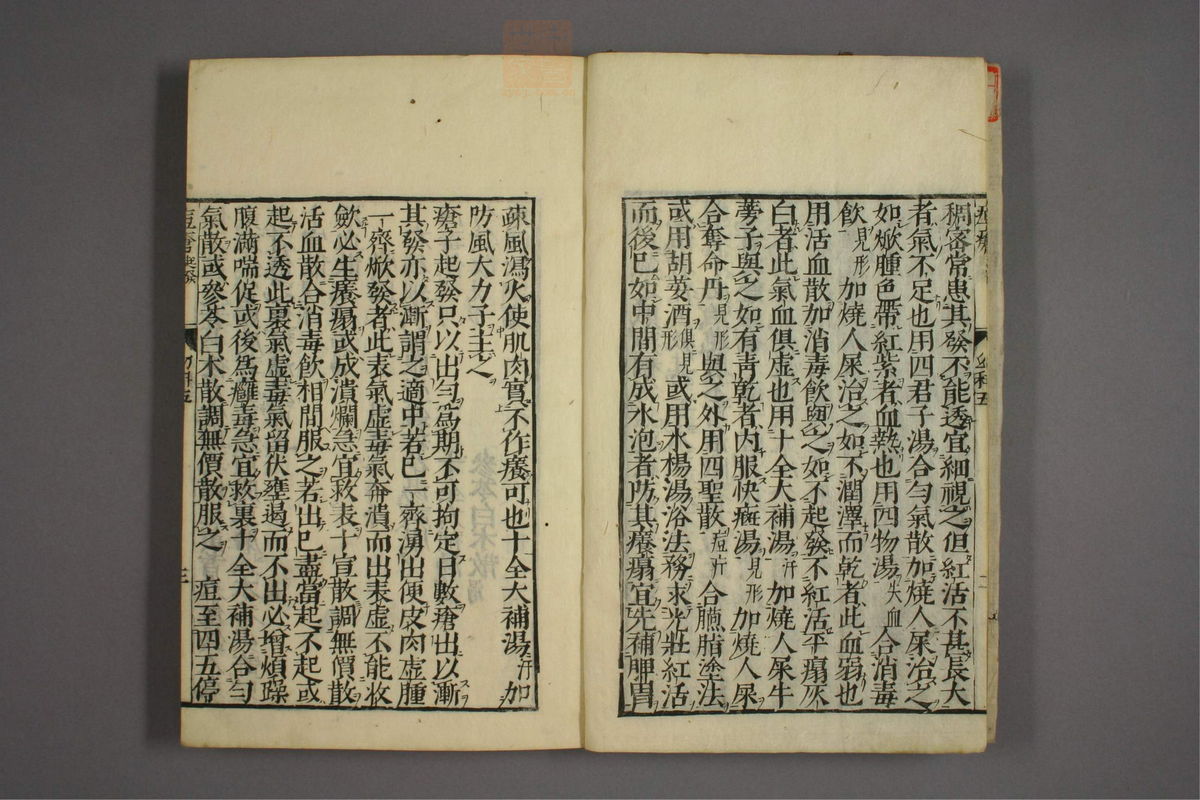 稠密常患其發不能透宜細視之但紅活不甚長大
者氣不足也用四君子湯合勻氣散加燒人屎治之
如焮腫色帶紅紫者血熱也用四物湯失血合消毒
飲見形加燒人屎治之如不潤澤而乾者此血弱也
用活血散加消毒飲與之如不起發不紅活平塌灰
白者此氣血俱虛也用十全大補湯汗加燒人屎牛
蒡子與之如有青乾者內服快斑湯見形加燒人屎
合奪命丹見形與之外用四聖散痘疔合臙脂塗法
或用胡荽酒俱見形或用水楊湯浴法務求光壯紅活
而後已如中間有成水泡者防其癢塌宜先補脾胃
二
疎風瀉火使肌肉實不作癢可也十全大補湯汗加
防風大力子主之
瘡子起發只以出勻為期不可拘定日數瘡出以漸
其發亦以漸謂之適中若已一齊湧出便皮肉虛腫
一齊焮發者此表氣虛毒氣奔潰而出表虛不能收
斂必生癢塌或成潰爛急宜救表十宣散調無價散
活血散合消毒飲相間服之若出已盡當起不起或
起不透此裏氣虛毒氣留伏壅遏而不出必增煩躁
腹滿喘促或後為癰毒急宜救裏十全大補湯合勻
氣散或參苓白朮散調無價散服之　痘至四五停
幼科五
三